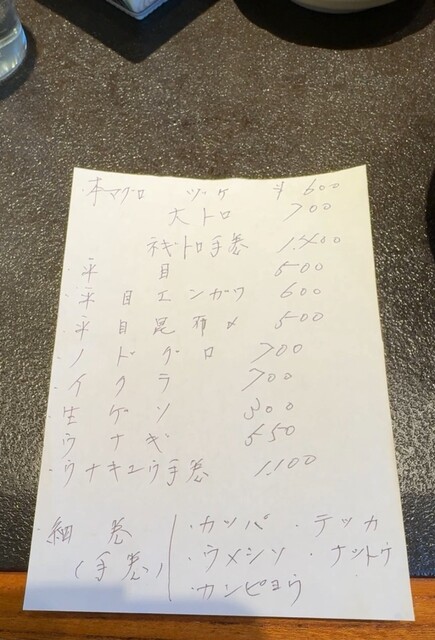 ・本マグロ ヅケ ¥600
大トロ 700
ネギトロ手巻 1.400
・平目 500
・平目エンガワ 600
・平目昆布〆 500
・ノドグロ 700
・イクラ 700
・生ゲソ 300
・ウナギ 550
・ウナキュウ手巻 1.100
・細巻 ・カッパ ・テッカ
(手巻) ・ウメシソ ・ナットウ
・カンピョウ